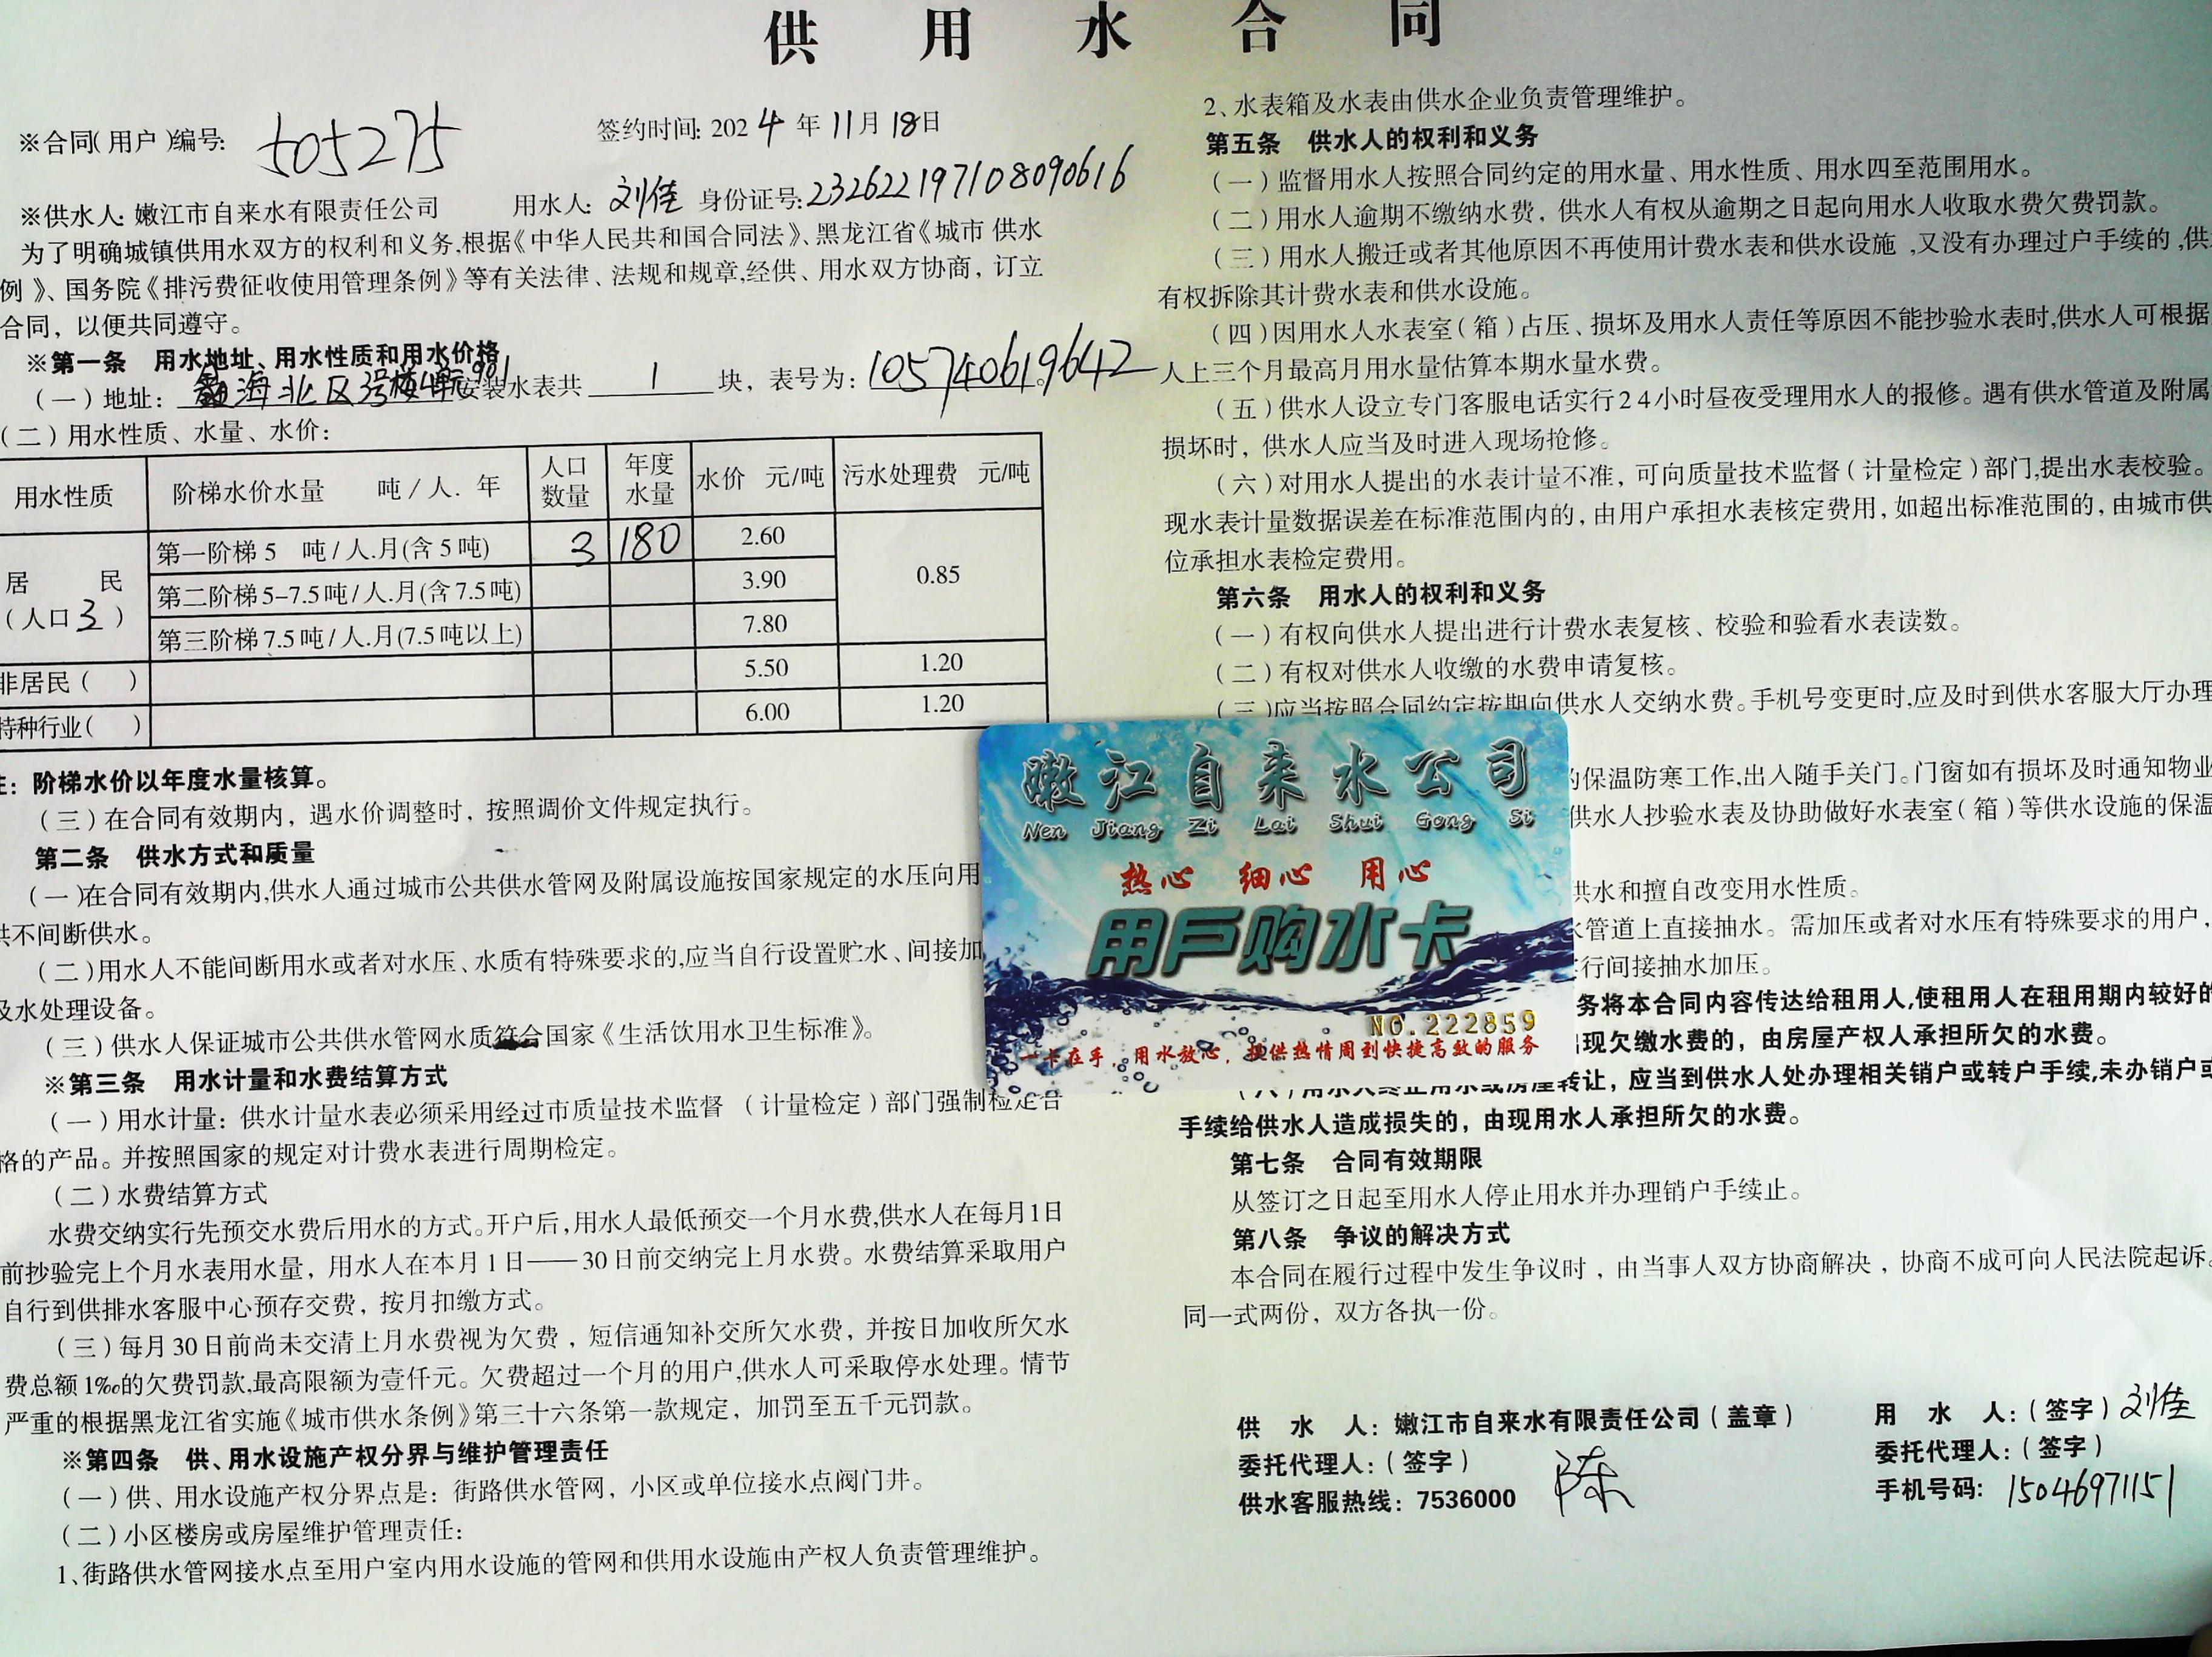 供 用 水 合 同
※合同(用户)编号: 505275 签约时间: 2024年11月18日
※供水人: 嫩江市自来水有限责任公司 用水人: 刘佳 身份证号: 232622197108090616
为了明确城镇供用水双方的权利和义务,根据《中华人民共和国合同法》、黑龙江省《城市 供水
例》、国务院《排污费征收使用管理条例》等有关法律、法规和规章,经供、用水双方协商，订立
合同，以便共同遵守。
※第一条 用水地址、用水性质和用水价格
(一)地址: 海北区3号楼4单元901 安装水表共 1 块，表号为: 105740619642。
(二)用水性质、水量、水价:
用水性质 阶梯水价水量 吨/人.年 人口数量 年度水量 水价 元/吨 污水处理费 元/吨
居 民 (人口3) 第一阶梯5 吨/人.月(含5吨) 3 180 2.60 0.85
第二阶梯5-7.5吨/人.月(含7.5吨) 3.90
第三阶梯7.5吨/人.月(7.5吨以上) 7.80
非居民( ) 5.50 1.20
特种行业( ) 6.00 1.20
注: 阶梯水价以年度水量核算。
(三)在合同有效期内，遇水价调整时，按照调价文件规定执行。
第二条 供水方式和质量
(一)在合同有效期内,供水人通过城市公共供水管网及附属设施按国家规定的水压向用
供不间断供水。
(二)用水人不能间断用水或者对水压、水质有特殊要求的,应当自行设置贮水、间接加
及水处理设备。
(三)供水人保证城市公共供水管网水质符合国家《生活饮用水卫生标准》。
※第三条 用水计量和水费结算方式
(一)用水计量: 供水计量水表必须采用经过市质量技术监督 (计量检定)部门强制检定合
格的产品。并按照国家的规定对计费水表进行周期检定。
(二)水费结算方式
水费交纳实行先预交水费后用水的方式。开户后,用水人最低预交一个月水费,供水人在每月1日
前抄验完上个月水表用水量，用水人在本月1日——30日前交纳完上月水费。水费结算采取用户
自行到供排水客服中心预存交费，按月扣缴方式。
(三)每月30日前尚未交清上月水费视为欠费，短信通知补交所欠水费，并按日加收所欠水
费总额1‰的欠费罚款,最高限额为壹仟元。欠费超过一个月的用户,供水人可采取停水处理。情节
严重的根据黑龙江省实施《城市供水条例》第三十六条第一款规定，加罚至五千元罚款。
※第四条 供、用水设施产权分界与维护管理责任
(一)供、用水设施产权分界点是: 街路供水管网，小区或单位接水点阀门井。
(二)小区楼房或房屋维护管理责任:
1、街路供水管网接水点至用户室内用水设施的管网和供用水设施由产权人负责管理维护。
2、水表箱及水表由供水企业负责管理维护。
第五条 供水人的权利和义务
(一)监督用水人按照合同约定的用水量、用水性质、用水四至范围用水。
(二)用水人逾期不缴纳水费，供水人有权从逾期之日起向用水人收取水费欠费罚款。
(三)用水人搬迁或者其他原因不再使用计费水表和供水设施,又没有办理过户手续的,供
有权拆除其计费水表和供水设施。
(四)因用水人水表室(箱)占压、损坏及用水人责任等原因不能抄验水表时,供水人可根据
人上三个月最高月用水量估算本期水量水费。
(五)供水人设立专门客服电话实行24小时昼夜受理用水人的报修。遇有供水管道及附属
损坏时，供水人应当及时进入现场抢修。
(六)对用水人提出的水表计量不准，可向质量技术监督(计量检定)部门,提出水表校验。
现水表计量数据误差在标准范围内的，由用户承担水表核定费用，如超出标准范围的，由城市供
位承担水表检定费用。
第六条 用水人的权利和义务
(一)有权向供水人提出进行计费水表复核、校验和验看水表读数。
(二)有权对供水人收缴的水费申请复核。
(三)应当按照合同约定按期向供水人交纳水费。手机号变更时,应及时到供水客服大厅办理
的保温防寒工作,出入随手关门。门窗如有损坏及时通知物业
供水人抄验水表及协助做好水表室(箱)等供水设施的保温
供水和擅自改变用水性质。
水管道上直接抽水。需加压或者对水压有特殊要求的用户，
行间接抽水加压。
务将本合同内容传达给租用人,使租用人在租用期内较好的
出现欠缴水费的，由房屋产权人承担所欠的水费。
(六)用水人终止用水或房屋转让，应当到供水人处办理相关销户或转户手续,未办销户或
手续给供水人造成损失的，由现用水人承担所欠的水费。
第七条 合同有效期限
从签订之日起至用水人停止用水并办理销户手续止。
第八条 争议的解决方式
本合同在履行过程中发生争议时，由当事人双方协商解决，协商不成可向人民法院起诉。
同一式两份，双方各执一份。
供 水 人: 嫩江市自来水有限责任公司(盖章) 用 水 人:(签字) 刘佳
委托代理人:(签字) 陈 委托代理人:(签字)
供水客服热线: 7536000 手机号码: 15046971151
嫩江自来水公司
Nen Jiang Zi Lai Shui Gong Si
热心 细心 用心
用户购水卡
NO.222859
一卡在手，用水放心，提供热情周到快捷高效的服务